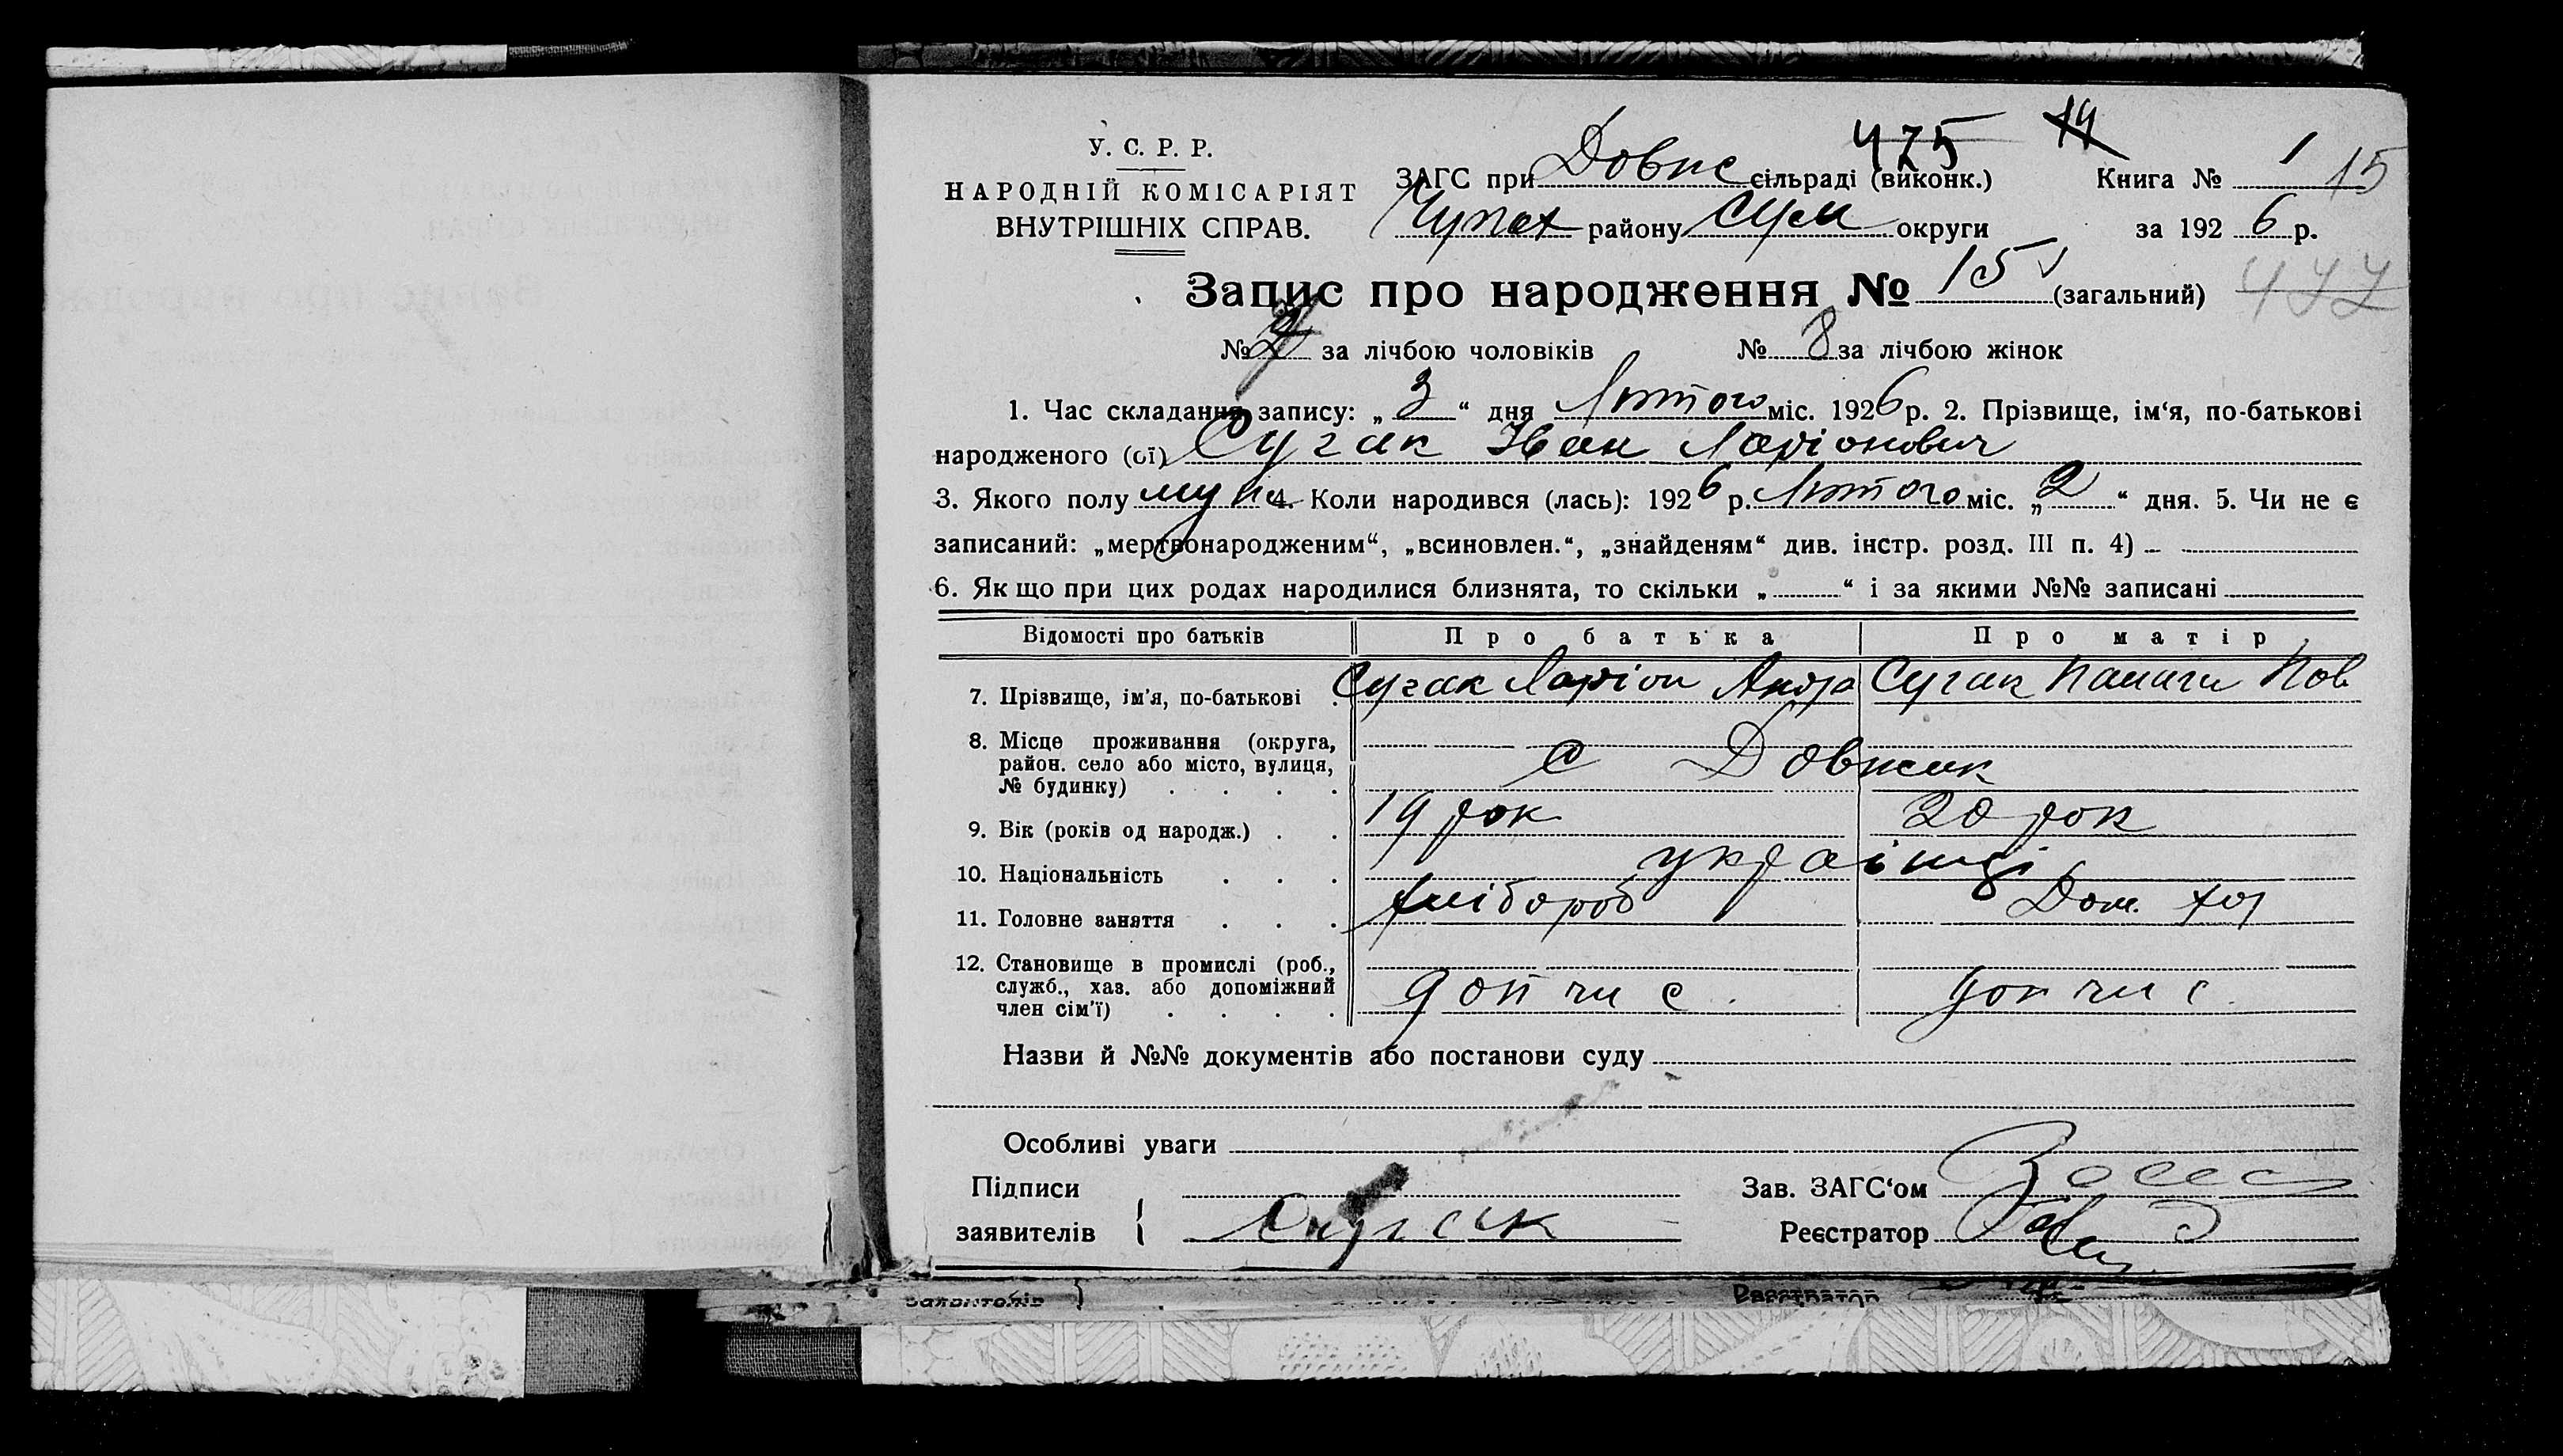 475 14
У. С. Р. Р.
НАРОДНІЙ КОМІСАРІЯТ
ВНУТРІШНІХ СПРАВ.
ЗАГС при Довж сільраді (виконк.)
Книга № 1 15
Чупах району Сум округи
за 192 6 р.
Запис про народження № 15 (загальний)
№ 7 за лічбою чоловіків № 8 за лічбою жінок
1. Час складання запису: „ 3 “ дня Лютого міс. 1926 р. 2. Прізвище, ім‘я, по-батькові
народженого (ої) Сугак Іван Ларіонович
3. Якого полу муж 4. Коли народився (лась): 1926 р. Лютого міс. „ 2 “ дня. 5. Чи не є
записаний: „мертвонародженим“, „всиновлен.“, „знайденям“ див. інстр. розд. III п. 4) –
6. Як що при цих родах народилися близнята, то скільки „ “ і за якими №№ записані
Відомості про батьків Про батька Про матір
7. Прізвище, ім'я, по-батькові Сугак Ларіон Андр Сугак Пов
8. Місце проживання (округа,
район. село або місто, вулиця,
№ будинку) с Довжик
9. Вік (років од народж.) 19 рок 20 рок
10. Національність українці
11. Головне заняття хлібороб Дом. хоз
12. Становище в промислі (роб.,
служб., хаз. або допоміжний
член сім'ї) доп чл с. доп чл с.
Назви й №№ документів або постанови суду
Особливі уваги
Підписи
заявителів
Зав. ЗАГС‘ом
Реєстратор
заявителів
Реєстратор